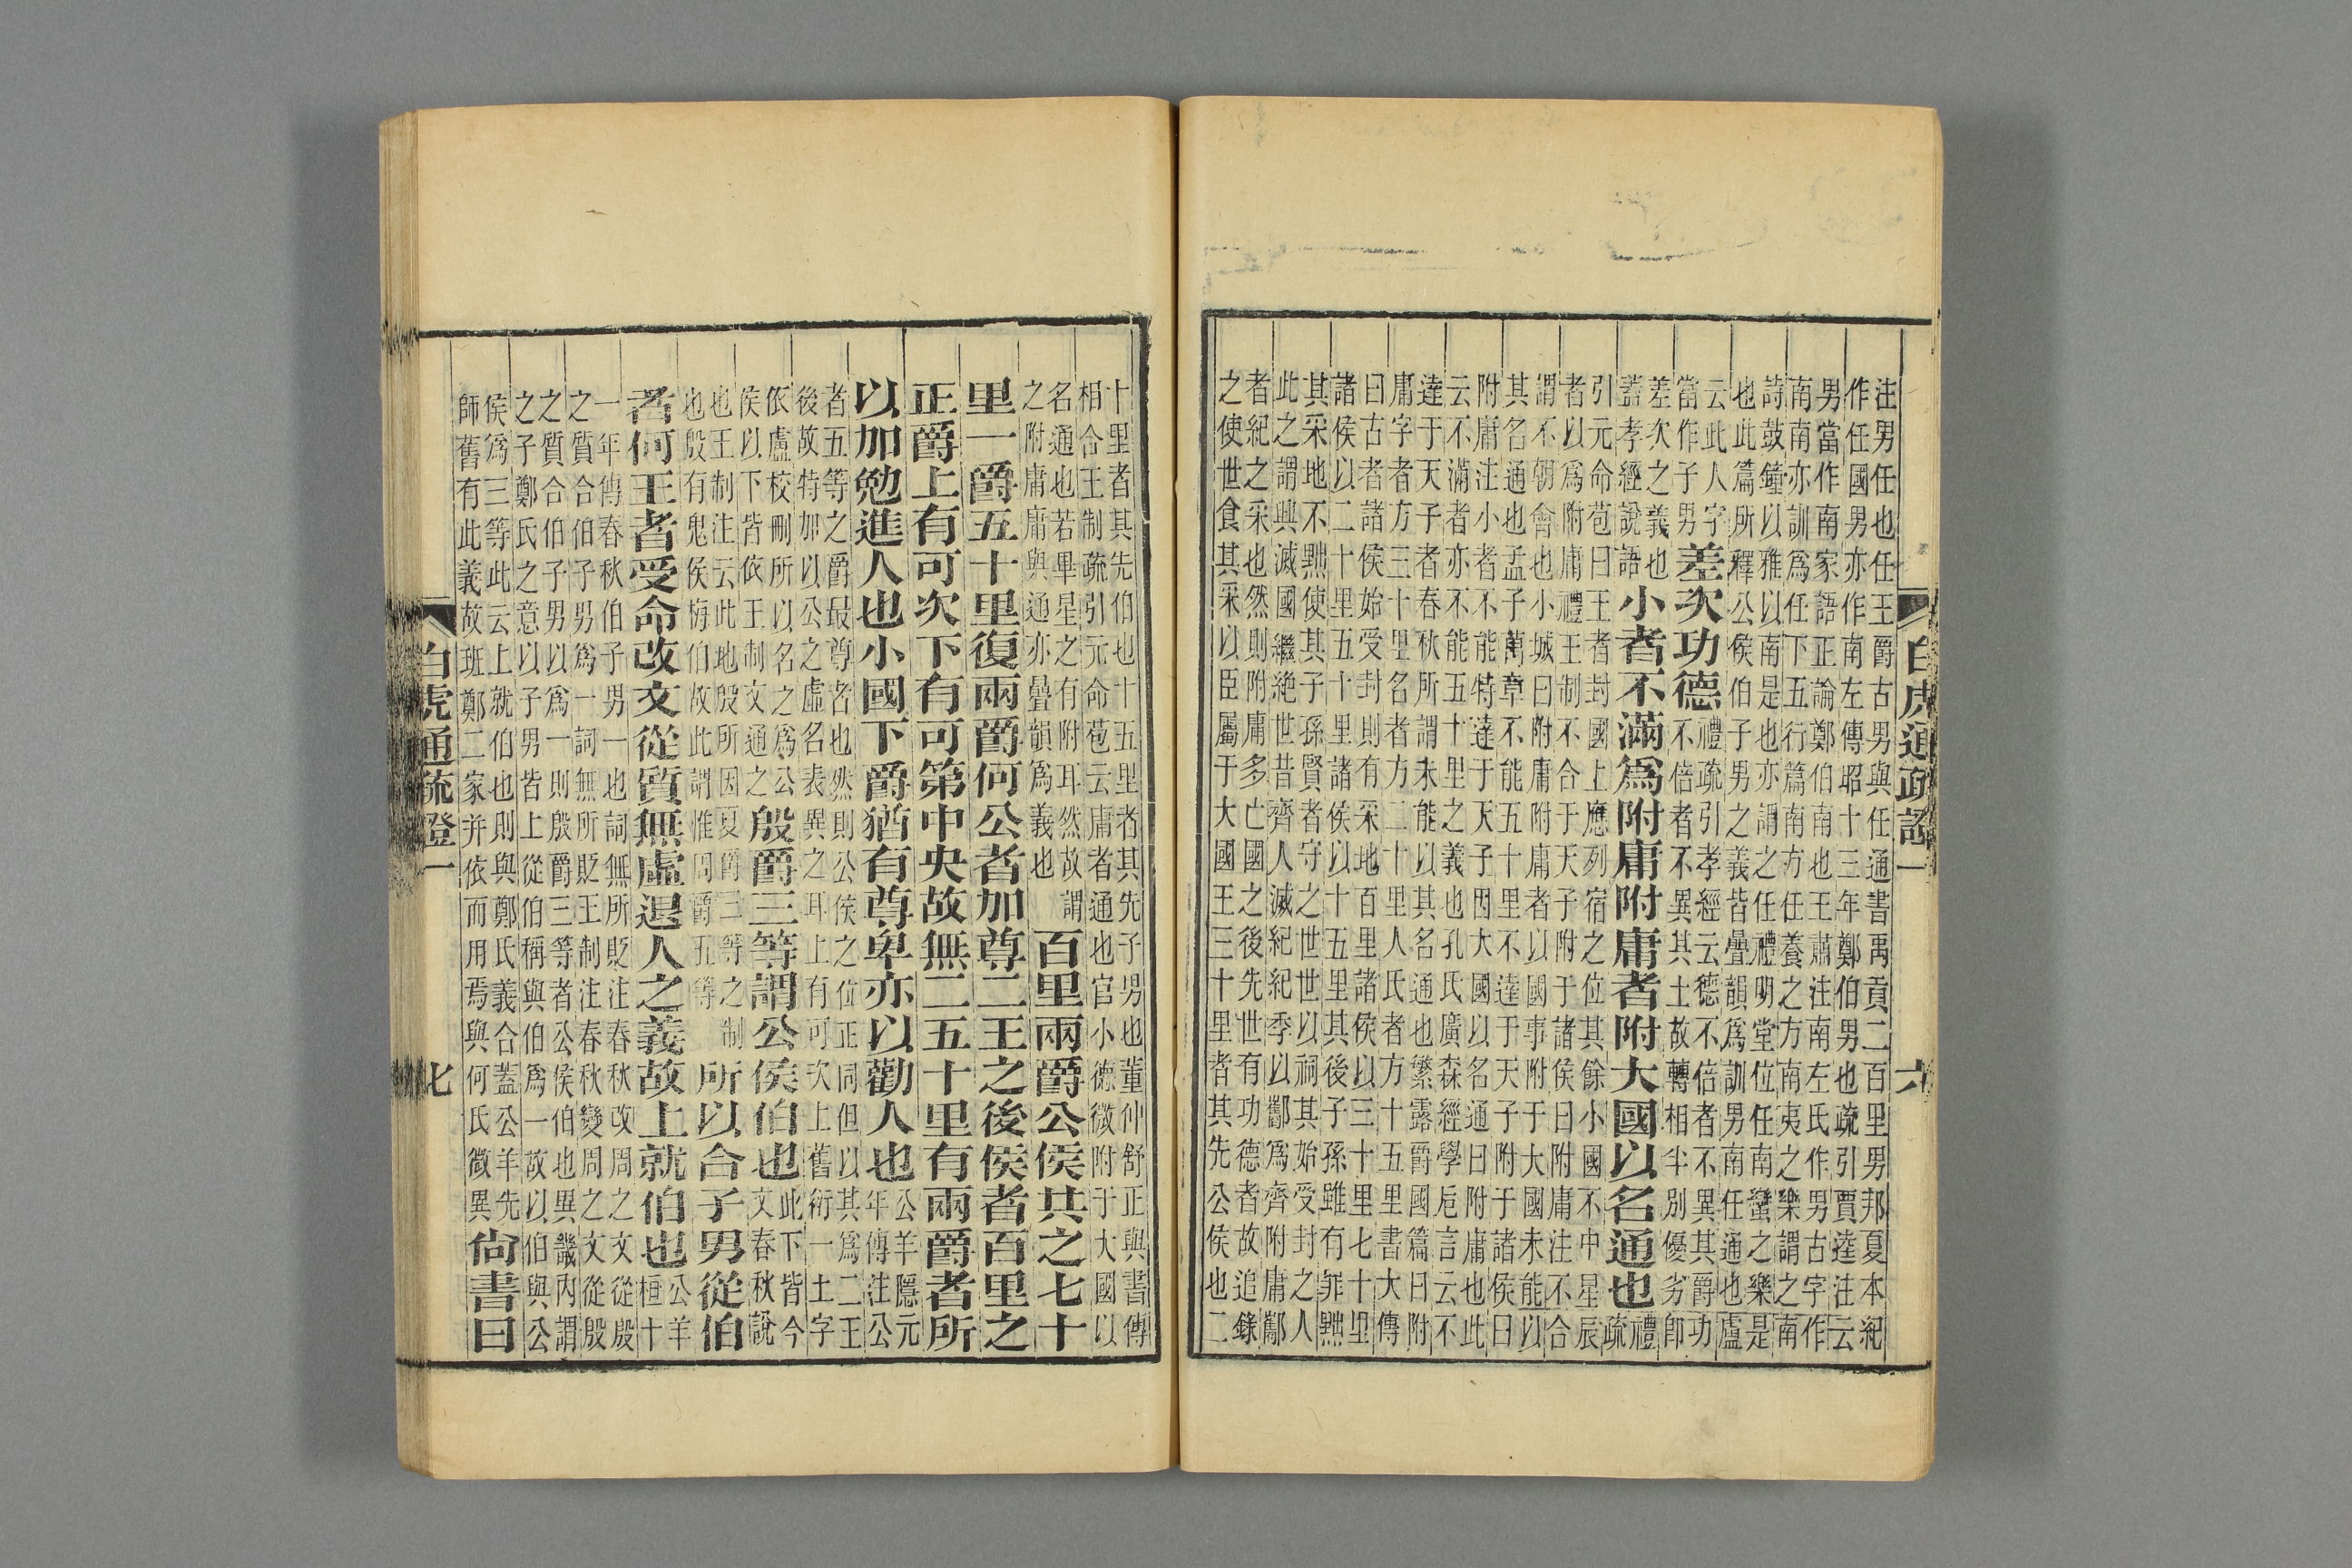 注男任也任王爵古男與任通書禹貢二百里男邦夏本紀
作任國男亦作南左傳昭十三年鄭伯男也疏引賈逵注云
男當作南家語正論鄭伯南也王肅注南左氏作男古字作
南南亦訓爲任下五行篇南方任養之方南夷之樂謂之南
詩鼓鐘以雅以南是也亦謂之任禮明堂位任南蠻之樂是
也此篇所釋公侯伯子男之義皆疊韻爲訓男南任通也盧
云此人字
當作子男
差次功德
禮疏引孝經云德不倍者不異其爵功
不倍者不異其土故轉相半別優劣卽
差次之義也
蓋孝經說語
小者不滿爲附庸附庸者附大國以名通也
禮
疏
引元命苞曰王者封國上應列宿之位其餘小國不中星辰
者以爲附庸禮王制不合于天子附于諸侯曰附庸注不合
謂不朝會也小城曰附庸附庸者以國事附于大國未能以
其名通也孟子萬章不能五十里不達于天子附于諸侯曰
附庸注小者不能特達于天子因大國以名通曰附庸也此
云不滿者亦不能五十里之義也孔氏廣森經學卮言云不
達于天子者春秋所謂未能以其名通也繁露爵國篇曰附
庸字者方三十里名者方二十里人氏者方十五里書大傳
曰古者諸侯始受封則有采地百里諸侯以三十里七十里
諸侯以二十里五十里諸侯以十五里其後子孫雖有罪黜
其采地不黜使其子孫賢者守之世世以祠其始受封之人
此之謂興滅國繼絶世昔齊人滅紀紀季以酅爲齊附庸酅
者紀之采也然則附庸多亡國之後先世有功德者故追錄
之使世食其采以臣屬于大國王三十里者其先公侯也二
白虎通疏證一
六
十里者其先伯也十五里者其先子男也董仲舒正與書傳
相合王制疏引元命苞云庸者通也官小德微附于大國以
名通也若畢星之有附耳然故謂
之附庸庸與通亦疊韻爲義也
百里兩爵公侯共之七十
里一爵五十里復兩爵何公者加尊二王之後侯者百里之
正爵上有可次下有可第中央故無二五十里有兩爵者所
以加勉進人也小國下爵猶有尊卑亦以勸人也
公羊隱元
年傳注公
者五等之爵最尊者也然則公侯之位正同但以其爲二王
後故特加以公之虛名表異之耳上有可次上舊衍一土字
依盧校刪所以名之爲公
侯以下皆依王制文通之
殷爵三等謂公侯伯也
此下皆今
文春秋說
也王制注云此地殷所因夏爵三等之制
也殷有鬼侯悔伯故此謂惟周爵五等
所以合子男從伯
者何王者受命改文從質無虛退人之義故上就伯也
公羊
桓十
一年傳春秋伯子男一也詞無所貶注春秋改周之文從殷
之質合伯子男爲一詞無所貶王制注春秋變周之文從殷
之質合伯子男以爲一則殷爵三等者公侯伯也異畿內謂
之子鄭氏之意以子男皆上從伯稱與伯爲一故以伯與公
侯爲三等此云上就伯也則與鄭氏義合蓋公羊先
師舊有此義故班鄭二家并依而用焉與何氏微異
尙書曰
白虎通疏證一
七